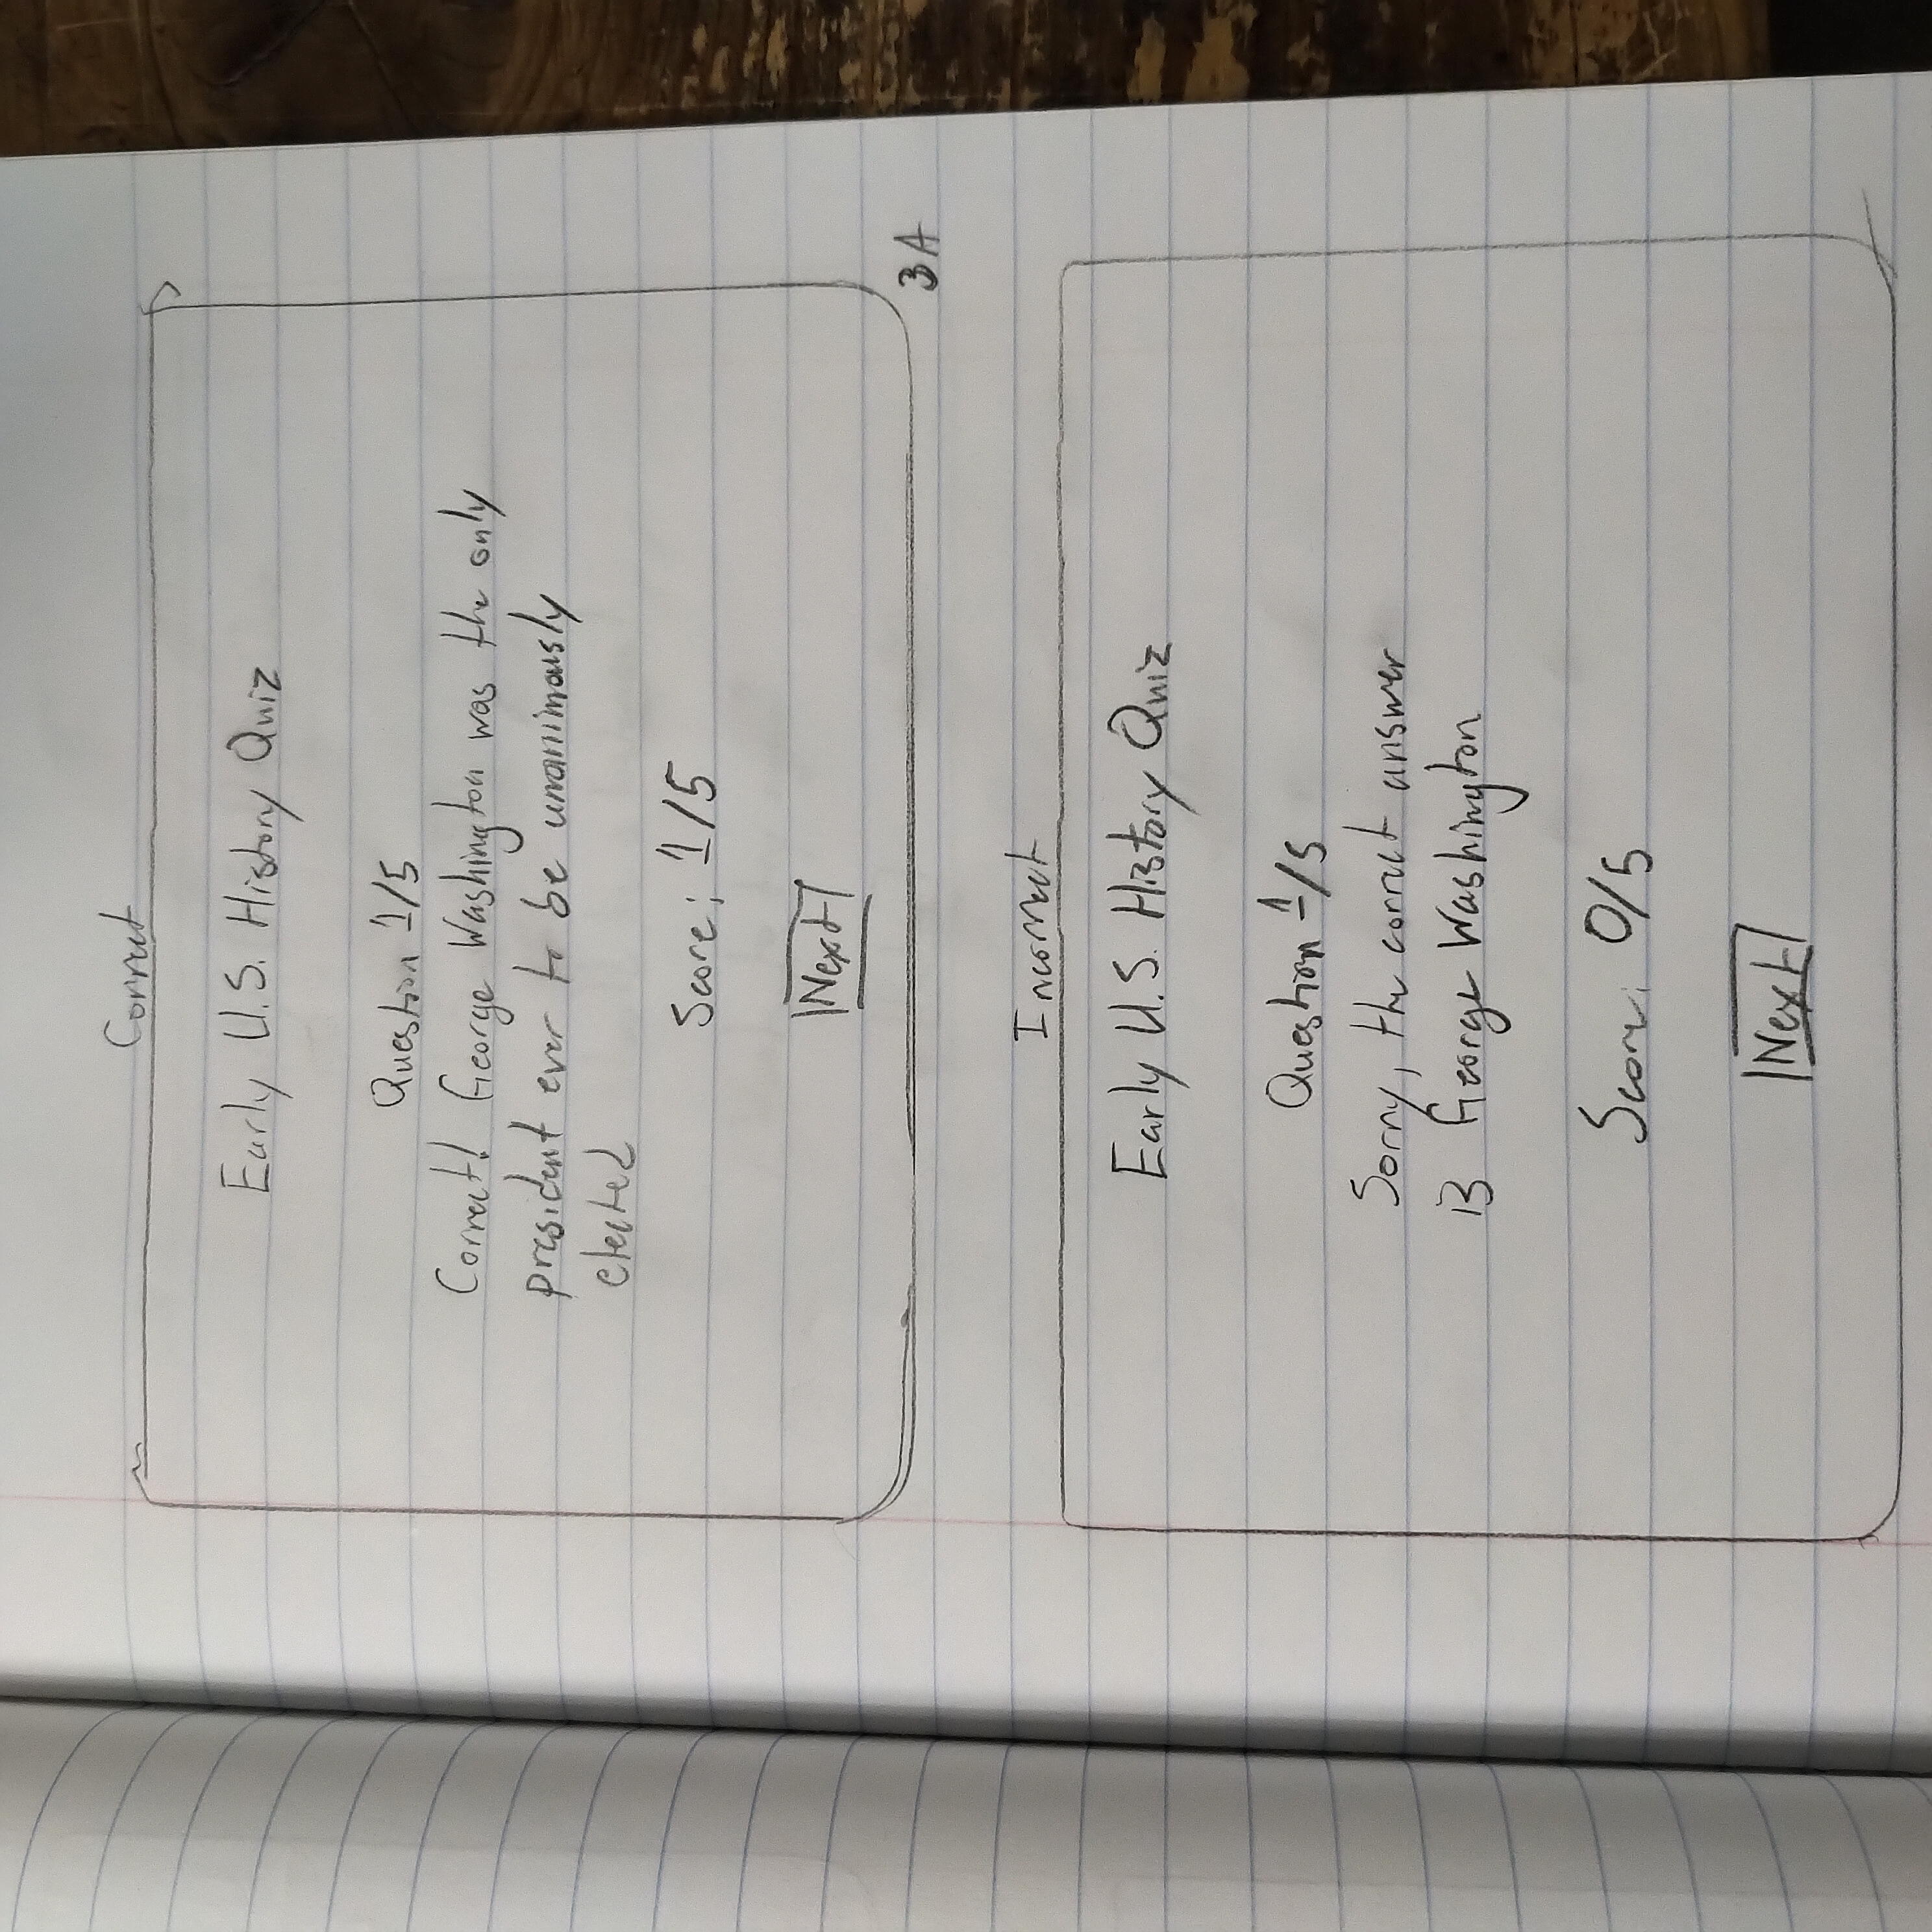 Correct
Early U.S. History Quiz
Question 1/5
Correct! George Washington was the only
president ever to be unanimously
elected
Score: 1/5
Next
3A
Incorrect
Early U.S. History Quiz
Question 1/5
Sorry, the correct answer
is George Washington
Score: 0/5
Next